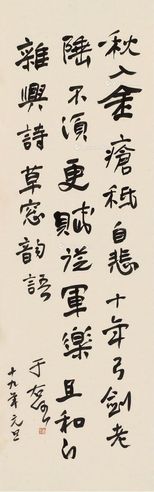 秋入金瘡秖自悲十年弓劍老
陲不須更賦從軍樂且和
雜興詩草窓韵語
于右任
十九年元旦